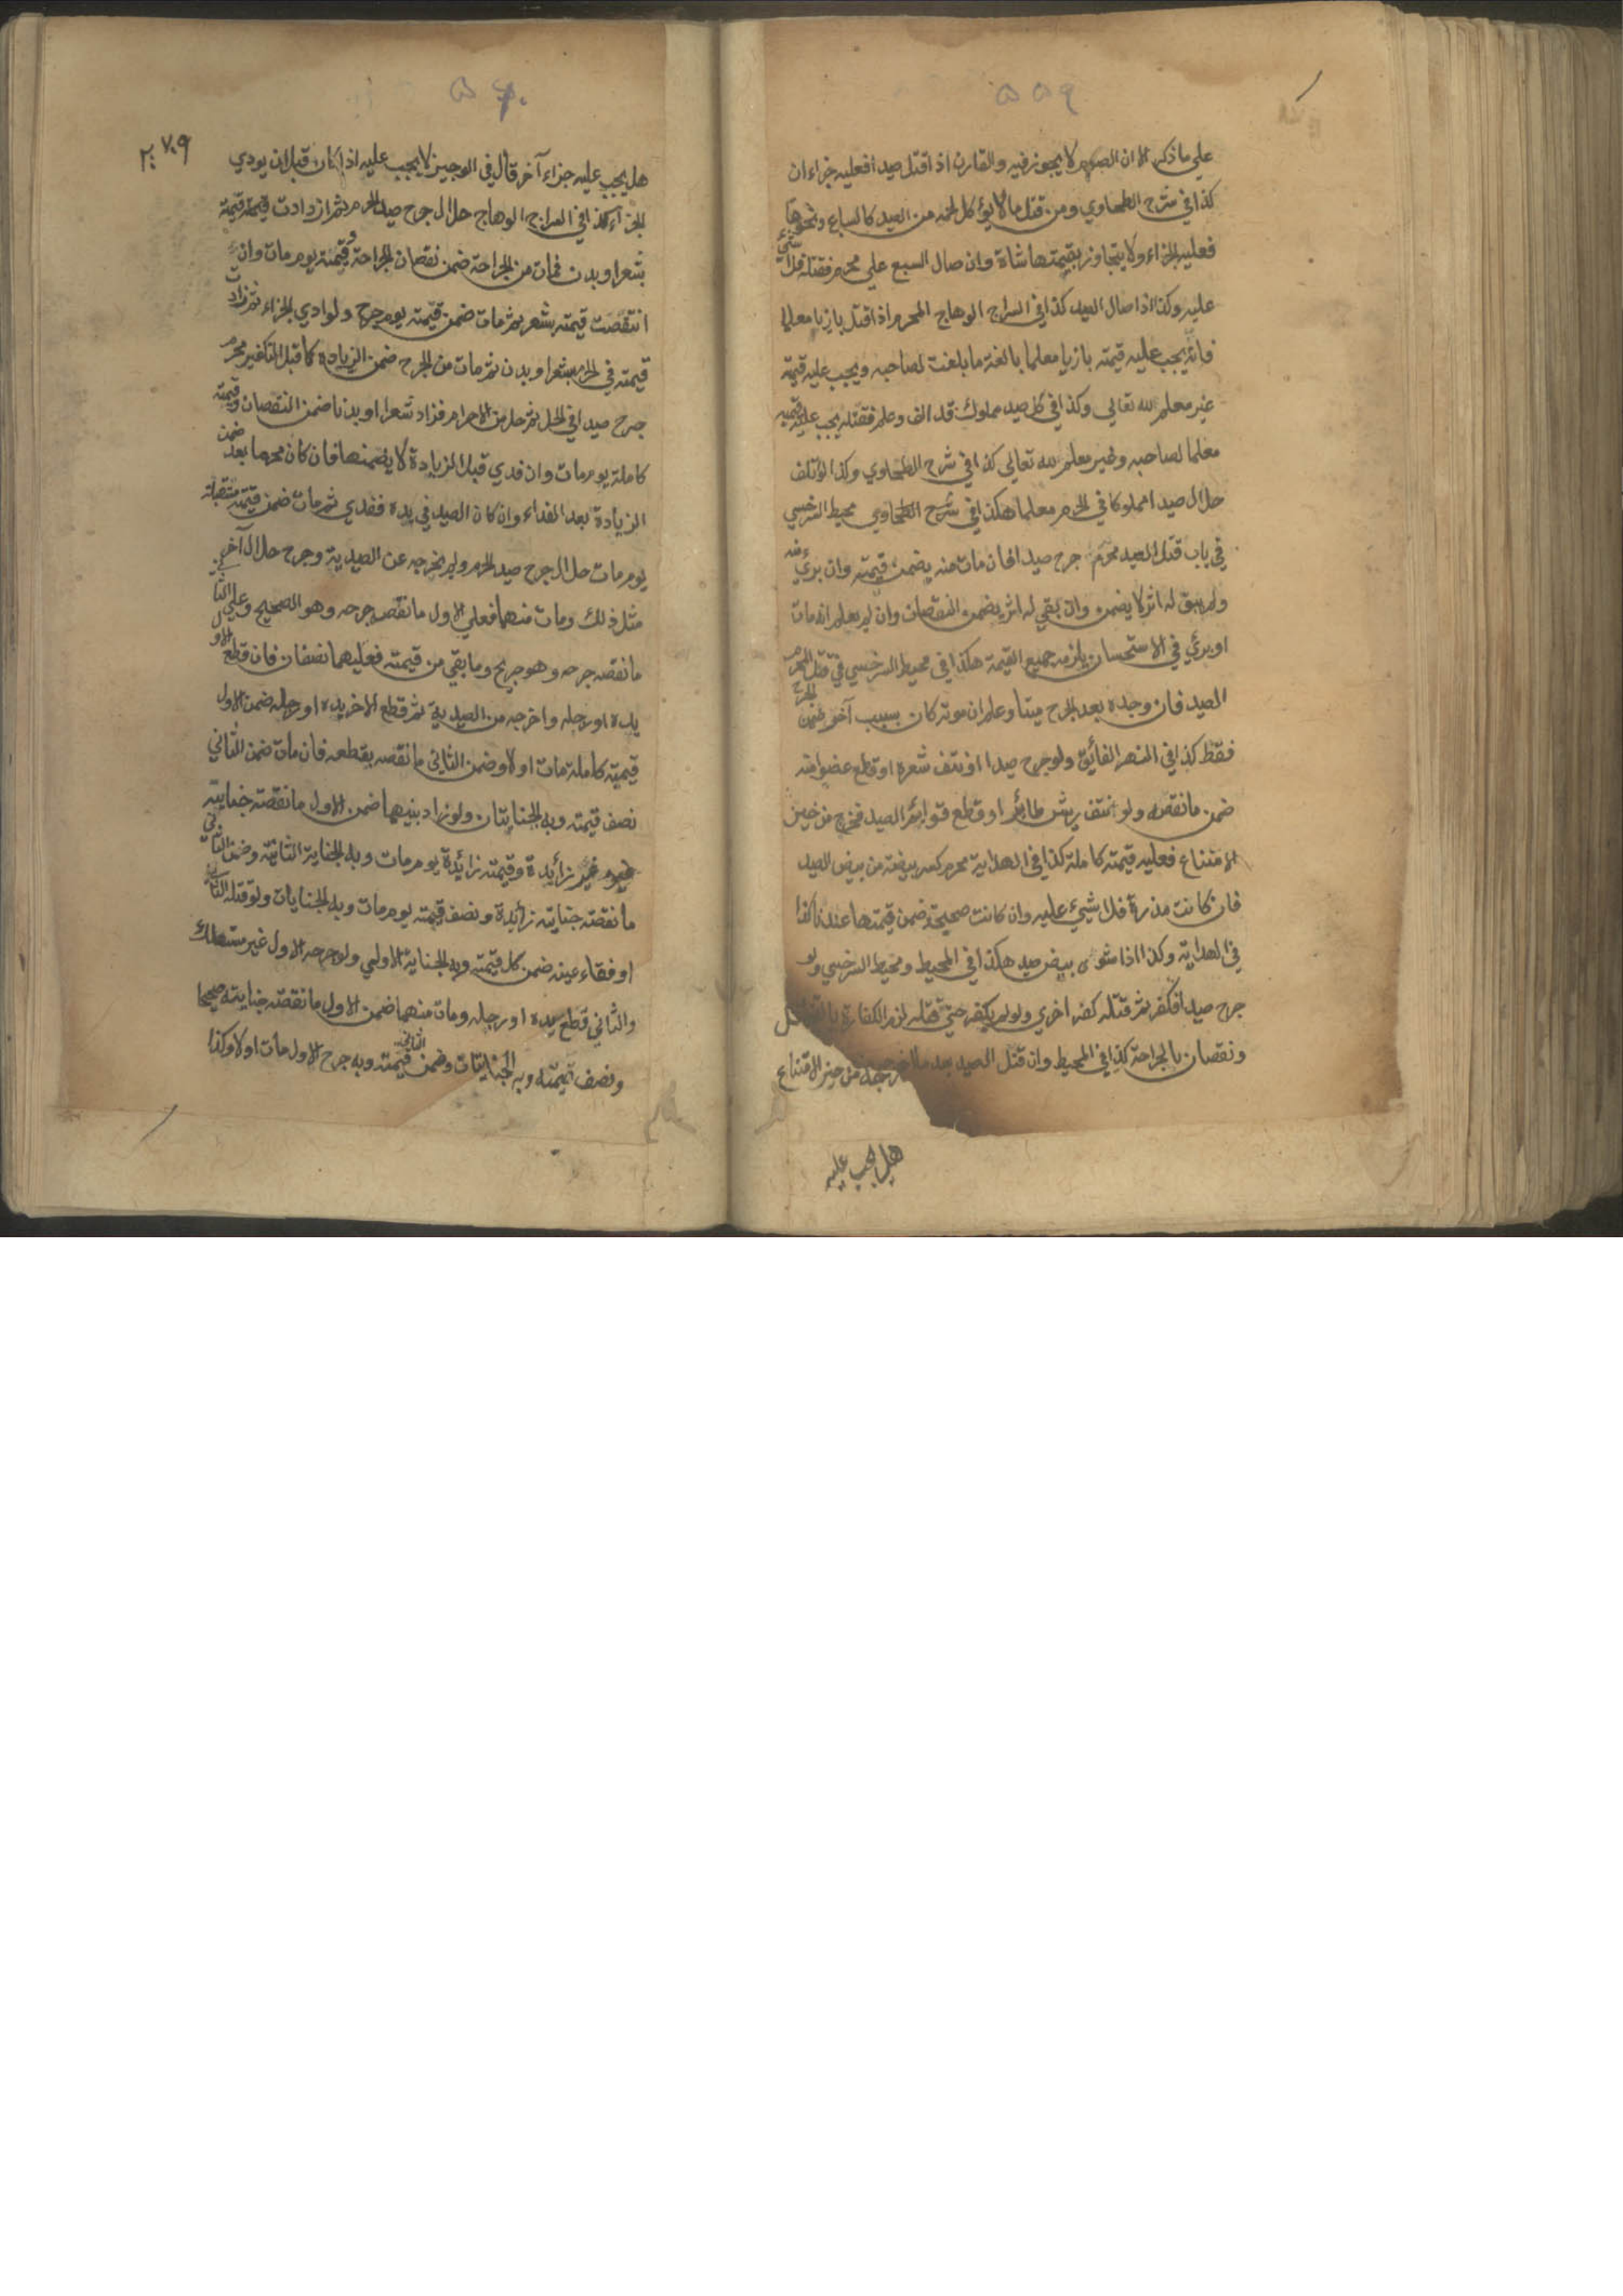 ٥٥٩
علي ما ذكر الا ان الصوم لا يجوز فيه والقارن اذا قتل صيدا فعليه جزاءان
كذا في شرح الطحاوي ومن قتل ما لا يؤكل لحمه من الصيد كالسباع ونحوها
فعليه الجزاء ولا يتجاوز بقيمتها شاة وان صال السبع علي محرم فقتله فلا شيء
عليه وكذا اذا صال الصيد كذا في السراج الوهاج المحرم اذا قتل بازيا معلما
فانه يجب عليه قيمته بازيا معلما بالغة ما بلغت لصاحبه ويجب عليه قيمته
غير معلم لله تعالي وكذا في كل صيد مملوك قد الف وعلم فقتله يجب عليه قيمته
معلما لصاحبه وغير معلم لله تعالي كذا في شرح الطحاوي وكذا لو تلف
حلال صيدا مملوكا في الحرم معلما هكذا في شرح الطحاوي محيط السرخسي
في باب قتل الصيد محرم جرح صيدا فان مات منه يضمن قيمته وان بري منه
ولم يبق له اثر لا يضمن وان بقي له اثر يضمن النقصان وان لم يعلم انه مات
او بري في الاستحسان يلزمه جميع القيمة هكذا في محيط السرخسي في قتل المحرم
الصيد فان وجده بعد الجرح ميتا وعلم ان موته كان بسبب آخر ضمن الجرح
فقط كذا في النهر الفائق ولو جرح صيدا او نتف شعره او قطع عضوا منه
ضمن ما نقصه ولو نتف ريش طائر او قطع قوائم الصيد فخرج من حيز
الامتناع فعليه قيمته كاملة كذا في الهداية محرم كسر بيضة من بيض الصيد
فان كانت مذرة فلا شيء عليه وان كانت صحيحة ضمن قيمتها عندنا كذا
في الهداية وكذا اذا شوى بيض صيد هكذا في المحيط ومحيط السرخسي ولو
جرح صيدا فكفر ثم قتله كفر اخري ولو لم يكفر حتي قتله لزم الكفارة بالقتل
ونقصان بالجراحة كذا في المحيط وان قتل الصيد بعد ما اخرجه من حيز الامتناع
هل يجب عليه
٥٦٠
٢٧٠٩
هل يجب عليه جزاء آخر قال في الوجيز لا يجب عليه اذا كان قبل ان يودي
الجزاء كذا في السراج الوهاج حلال جرح صيد الحرم ثم ازدادت قيمته قيمة
بشعر او بدن فمات من الجراحة ضمن نقصان الجراحة وقيمته يوم مات وان
انتقصت قيمته بشعر ثم مات ضمن قيمته يوم جرح ولو ادي الجزاء ثم زادت
قيمته في الحرم بشعر او بدن ثم مات من الجرح ضمن الزيادة كما قبل التكفير محرم
جرح صيدا في الحل ثم حل من الاحرام فزاد شعرا او بدنا ضمن النقصان وقيمته
كاملة يوم مات وان فدي قبل الزيادة لا يضمنها فان كان محرما بعد ضمن
الزيادة بعد الفداء وان كان الصيد في يده ففدي ثم مات ضمن قيمته مستقبلة
يوم مات حلال جرح صيد الحرم ولم يخرجه عن الصيدية وجرح حلال آخر
مثل ذلك ومات منهما فعلي الاول ما نقصه جرحه وهو الصحيح وعلي الثاني
ما نقصه جرحه وهو جريح وما بقي من قيمته فعليهما نصفان فان قطع الاول
يده او رجله واخرجه من الصيدية ثم قطع الاخر يده او رجله ضمن الاول
قيمته كاملة مات اولا وضمن الثاني ما نقصه بقطعه فان مات ضمن الثاني
نصف قيمته وبه الجنايتان ولو زاد بينهما ضمن الاول ما نقصته جنايته
غير زائدة وقيمته زائدة يوم مات وبه الجناية الثانية وضمن الثاني
ما نقصته جنايته زائدة ونصف قيمته يوم مات وبه الجنايات ولو قتله الثاني
او فقاء عينه ضمن كل قيمته وبه الجناية الاولي ولو جرحه الاول غير مستهلك
والثاني قطع يده او رجله ومات منهما ضمن الاول ما نقصته جنايته صحيحا
ونصف قيمته وبه الجنايتان وضمن الثاني قيمته وبه جرح الاول مات اولا وكذا